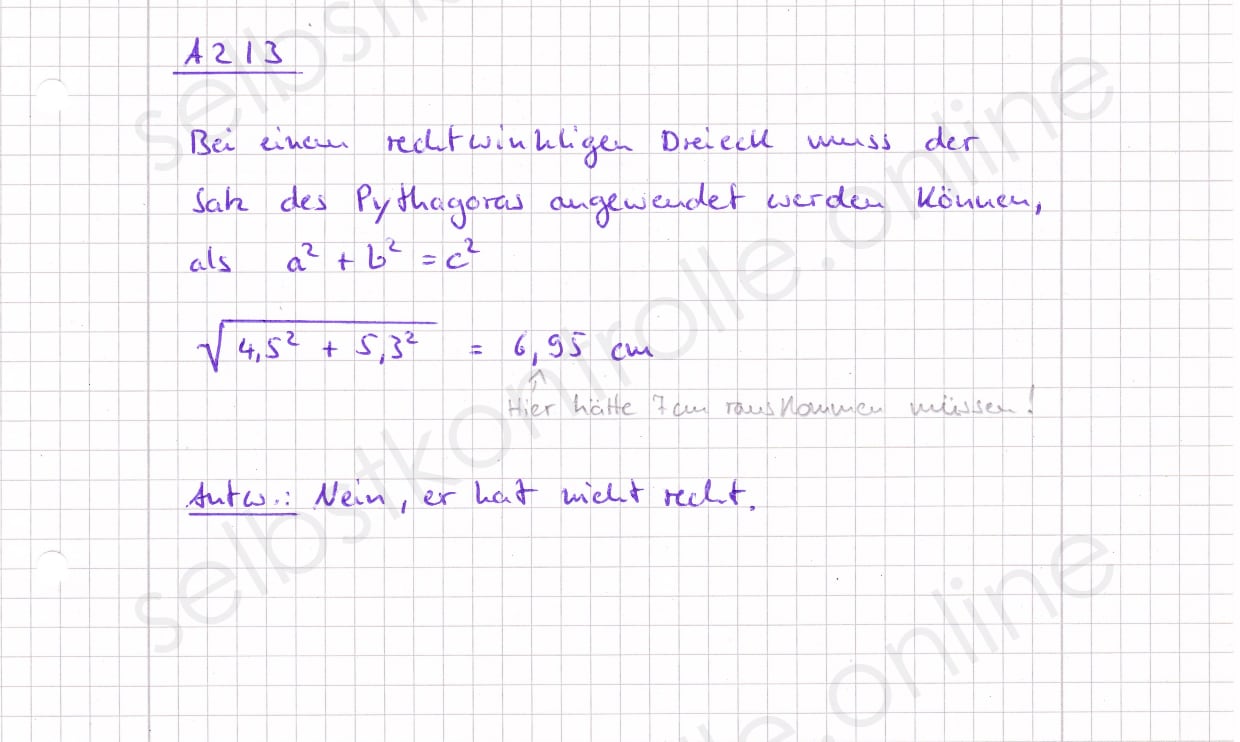 A213
Bei einem rechtwinkligen Dreieck muss der
Satz des Pythagoras angewendet werden können,
als a² + b² = c²
√4,5² + 5,3² = 6,95 cm
↑
Hier hätte 7cm rauskommen müssen!
Antw.: Nein, er hat nicht recht.
selbstkontrolle.online
selbstkontrolle.online